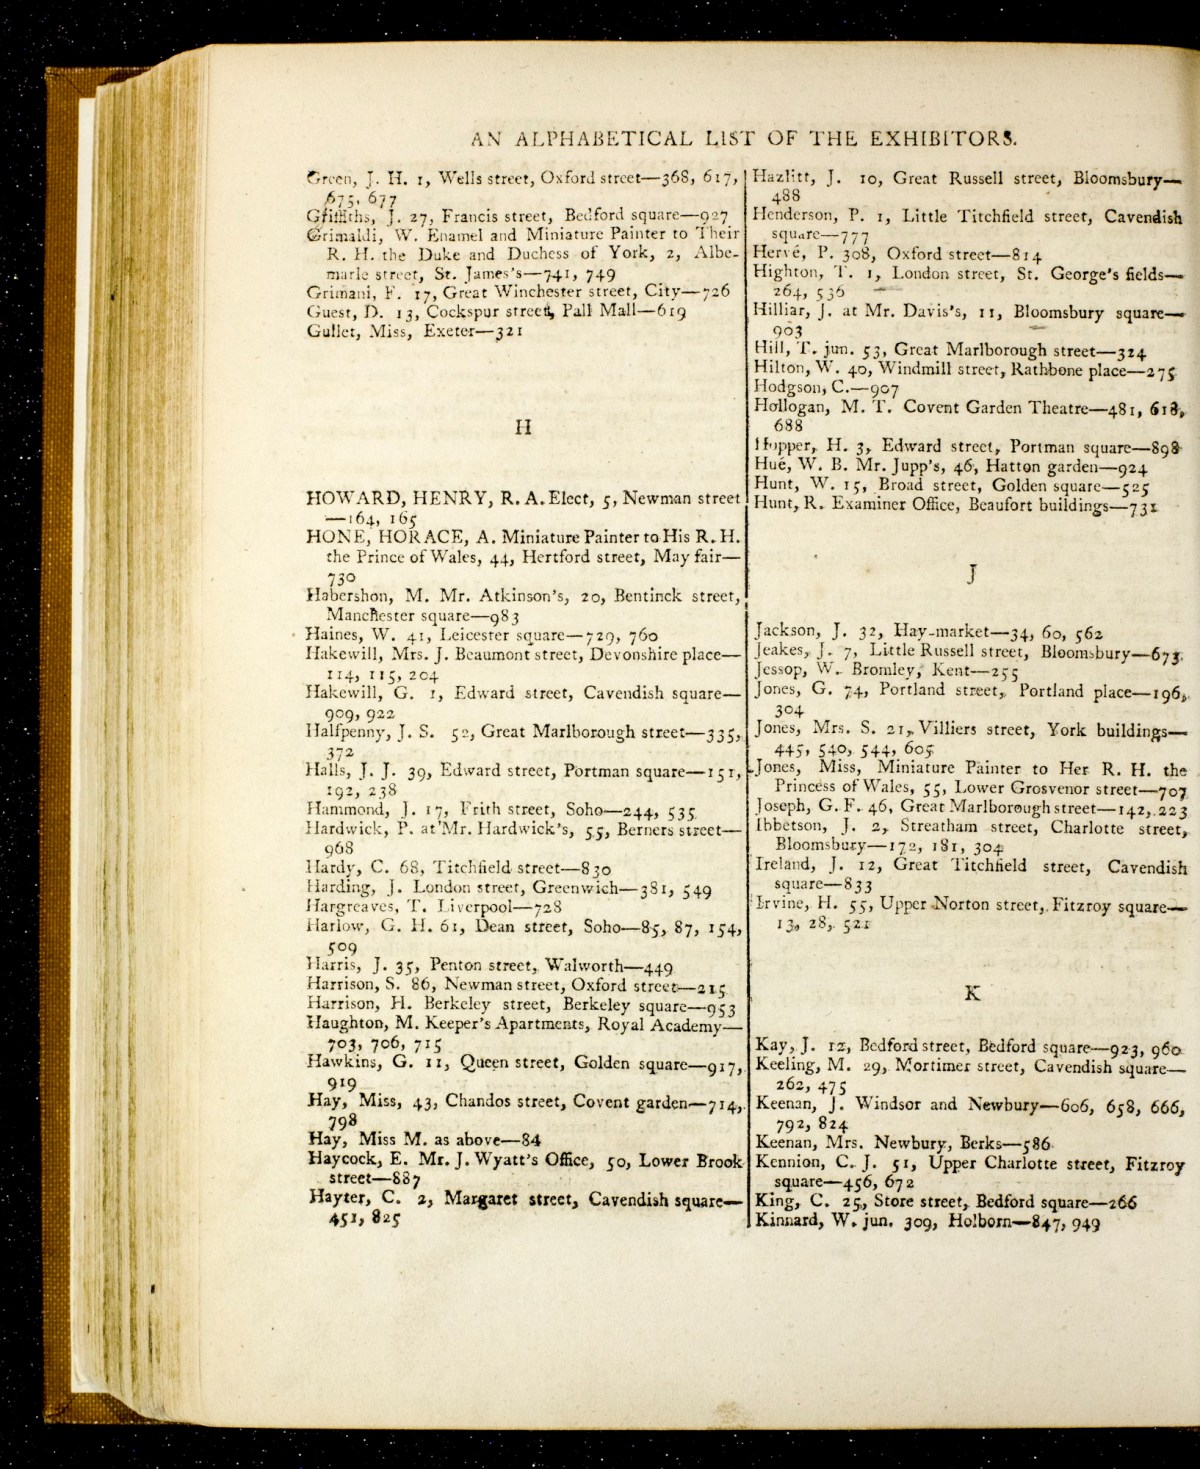 AN ALPHABETICAL LIST OF THE EXHIBITORS.
Green, J. H. 1, Wells street, Oxford street—368, 617,
675, 677
Griffiths, J. 27, Francis street, Bedford square—927
Grimaldi, W. Enamel and Miniature Painter to Their
R. H. the Duke and Duchess of York, 2, Albe-
marle street, St. James's—741, 749
Grimani, F. 17, Great Winchester street, City—726
Guest, D. 13, Cockspur street, Pall Mall—619
Gullet, Miss, Exeter—321
H
HOWARD, HENRY, R. A. Elect, 5, Newman street
—164, 165
HONE, HORACE, A. Miniature Painter to His R. H.
the Prince of Wales, 44, Hertford street, May fair—
730
Habershon, M. Mr. Atkinson's, 20, Bentinck street,
Manchester square—983
Haines, W. 41, Leicester square—729, 760
Hakewill, Mrs. J. Beaumont street, Devonshire place—
114, 115, 204
Hakewill, G. 1, Edward street, Cavendish square—
909, 922
Halfpenny, J. S. 52, Great Marlborough street—335,
372
Halls, J. J. 39, Edward street, Portman square—151,
192, 238
Hammond, J. 17, Frith street, Soho—244, 535
Hardwick, P. at Mr. Hardwick's, 55, Berners street—
968
Hardy, C. 68, Titchfield street—830
Harding, J. London street, Greenwich—381, 549
Hargreaves, T. Liverpool—728
Harlow, G. H. 61, Dean street, Soho—85, 87, 154,
509
Harris, J. 35, Penton street, Walworth—449
Harrison, S. 86, Newman street, Oxford street—215
Harrison, H. Berkeley street, Berkeley square—953
Haughton, M. Keeper's Apartments, Royal Academy—
703, 706, 715
Hawkins, G. 11, Queen street, Golden square—917,
919
Hay, Miss, 43, Chandos street, Covent garden—714,
798
Hay, Miss M. as above—84
Haycock, E. Mr. J. Wyatt's Office, 50, Lower Brook
street—887
Hayter, C. 2, Margaret street, Cavendish square—
451, 825
Hazlitt, J. 10, Great Russell street, Bloomsbury—
488
Henderson, P. 1, Little Titchfield street, Cavendish
square—777
Hervé, P. 308, Oxford street—814
Highton, T. 1, London street, St. George's fields—
264, 536
Hilliar, J. at Mr. Davis's, 11, Bloomsbury square—
903
Hill, T. jun. 53, Great Marlborough street—324
Hilton, W. 40, Windmill street, Rathbone place—275
Hodgson, C.—907
Hollogan, M. T. Covent Garden Theatre—481, 618,
688
Hopper, H. 3, Edward street, Portman square—898
Hué, W. B. Mr. Jupp's, 46, Hatton garden—924
Hunt, W. 15, Broad street, Golden square—525
Hunt, R. Examiner Office, Beaufort buildings—731
J
Jackson, J. 32, Hay-market—34, 60, 562
Jeakes, J. 7, Little Russell street, Bloomsbury—673
Jessop, W. Bromley, Kent—255
Jones, G. 74, Portland street, Portland place—196,
304
Jones, Mrs. S. 21, Villiers street, York buildings—
445, 540, 544, 605
Jones, Miss, Miniature Painter to Her R. H. the
Princess of Wales, 55, Lower Grosvenor street—707
Joseph, G. F. 46, Great Marlborough street—142, 223
Ibbetson, J. 2, Streatham street, Charlotte street,
Bloomsbury—172, 181, 304
Ireland, J. 12, Great Titchfield street, Cavendish
square—833
Irvine, H. 55, Upper Norton street, Fitzroy square—
13, 28, 521
K
Kay, J. 12, Bedford street, Bedford square—923, 960
Keeling, M. 29, Mortimer street, Cavendish square—
262, 475
Keenan, J. Windsor and Newbury—606, 658, 666,
792, 824
Keenan, Mrs. Newbury, Berks—586
Kennion, C. J. 51, Upper Charlotte street, Fitzroy
square—456, 672
King, C. 25, Store street, Bedford square—266
Kinnard, W. jun. 309, Holborn—847, 949